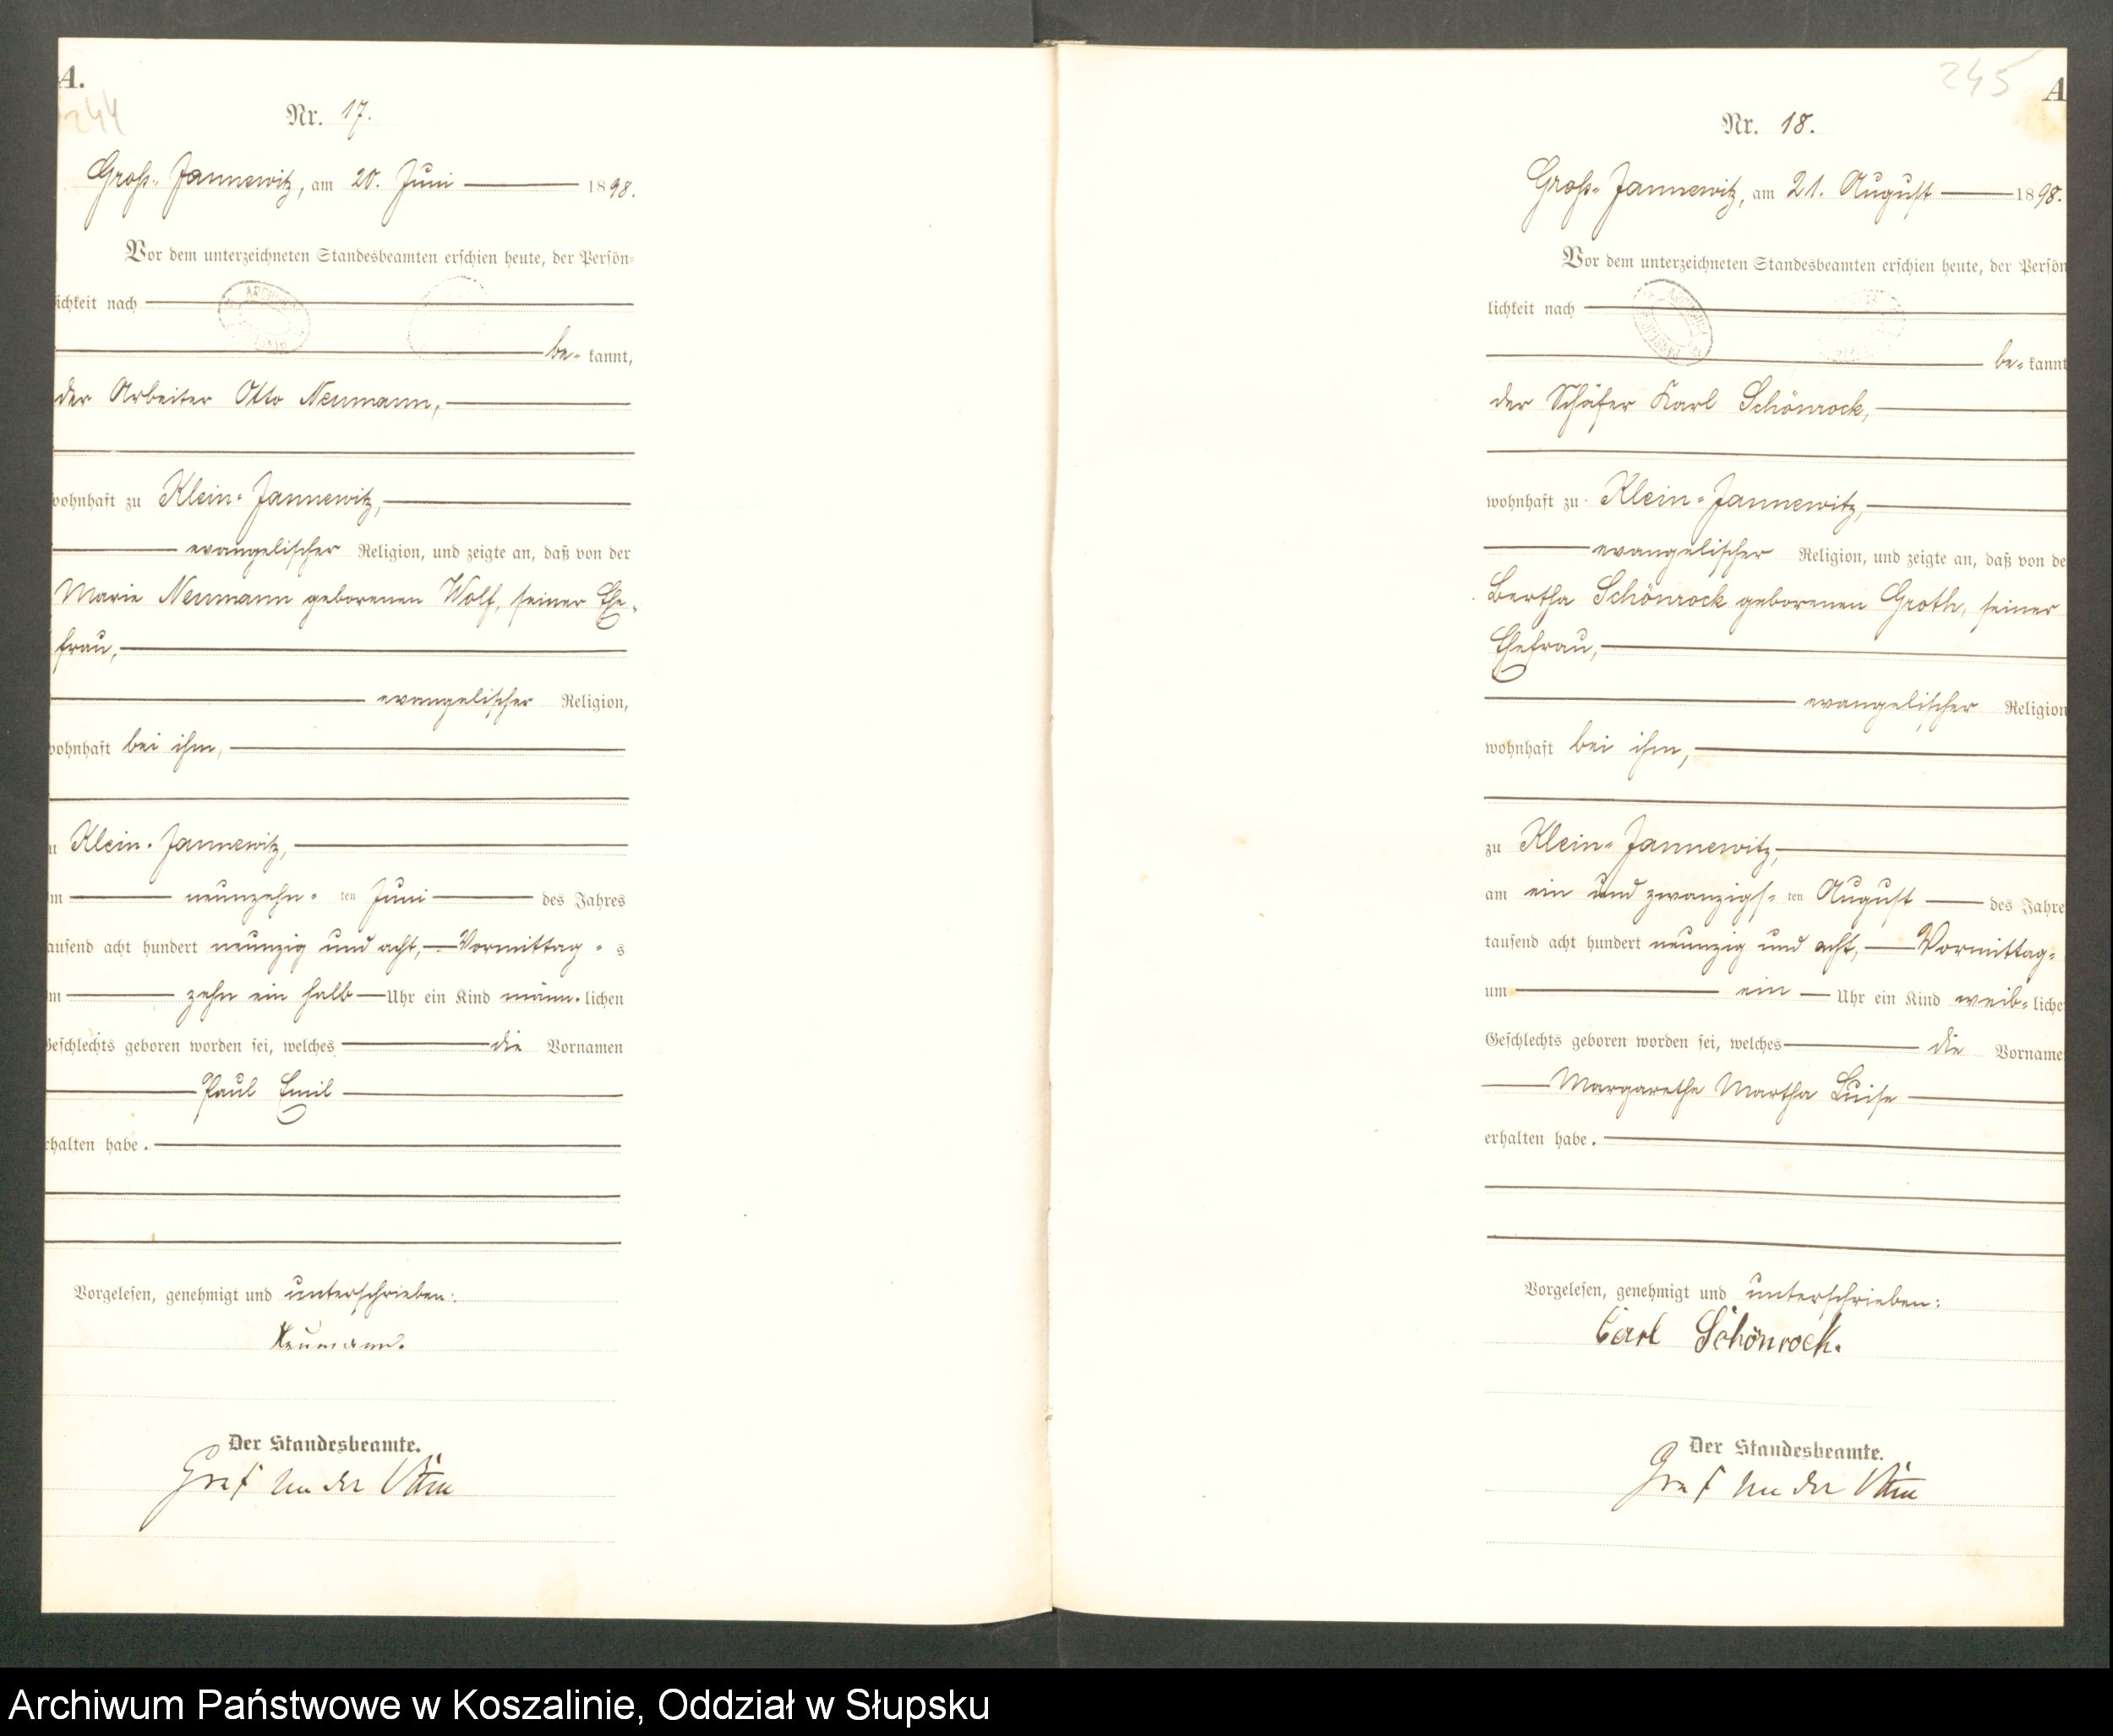 A.
244
Nr. 17.
Groß-Jannewitz, am 20. Juni 1898.
Vor dem unterzeichneten Standesbeamten erschien heute, der Persön-
lichkeit nach
be-kannt,
der Arbeiter Otto Neumann,
wohnhaft zu Klein-Jannewitz,
evangelischer Religion, und zeigte an, daß von der
Marie Neumann geborenen Wolf, seiner Ehe-
frau,
evangelischer Religion,
wohnhaft bei ihm,
zu Klein-Jannewitz,
am neunzehn-ten Juni des Jahres
tausend acht hundert neunzig und acht, Vormittag-s
um zehn ein halb Uhr ein Kind männ-lichen
Geschlechts geboren worden sei, welches die Vornamen
Paul Emil
erhalten habe.
Vorgelesen, genehmigt und unterschrieben:
Neumann.
Der Standesbeamte.
Graf von der
245
A
Nr. 18.
Groß-Jannewitz, am 21. August 1898.
Vor dem unterzeichneten Standesbeamten erschien heute, der Persön
lichkeit nach
be-kannt
der Schäfer Karl Schönrock,
wohnhaft zu Klein-Jannewitz,
evangelischer Religion, und zeigte an, daß von de
Bertha Schönrock geborenen Groth, seiner
Ehefrau,
evangelischer Religion
wohnhaft bei ihm,
zu Klein-Jannewitz,
am ein und zwanzigs-ten August des Jahre
tausend acht hundert neunzig und acht, Vormittag-
um ein Uhr ein Kind weib-liche
Geschlechts geboren worden sei, welches die Vorname
Margarethe Martha Luise
erhalten habe.
Vorgelesen, genehmigt und unterschrieben:
Carl Schönrock.
Der Standesbeamte.
Graf von der
Archiwum Państwowe w Koszalinie, Oddział w Słupsku